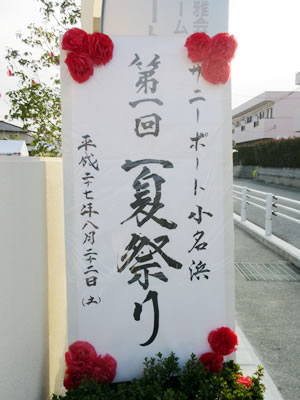 サニーポート小名浜
第一回 夏祭り
平成二十七年八月二十二日(土)
雅会
ーム